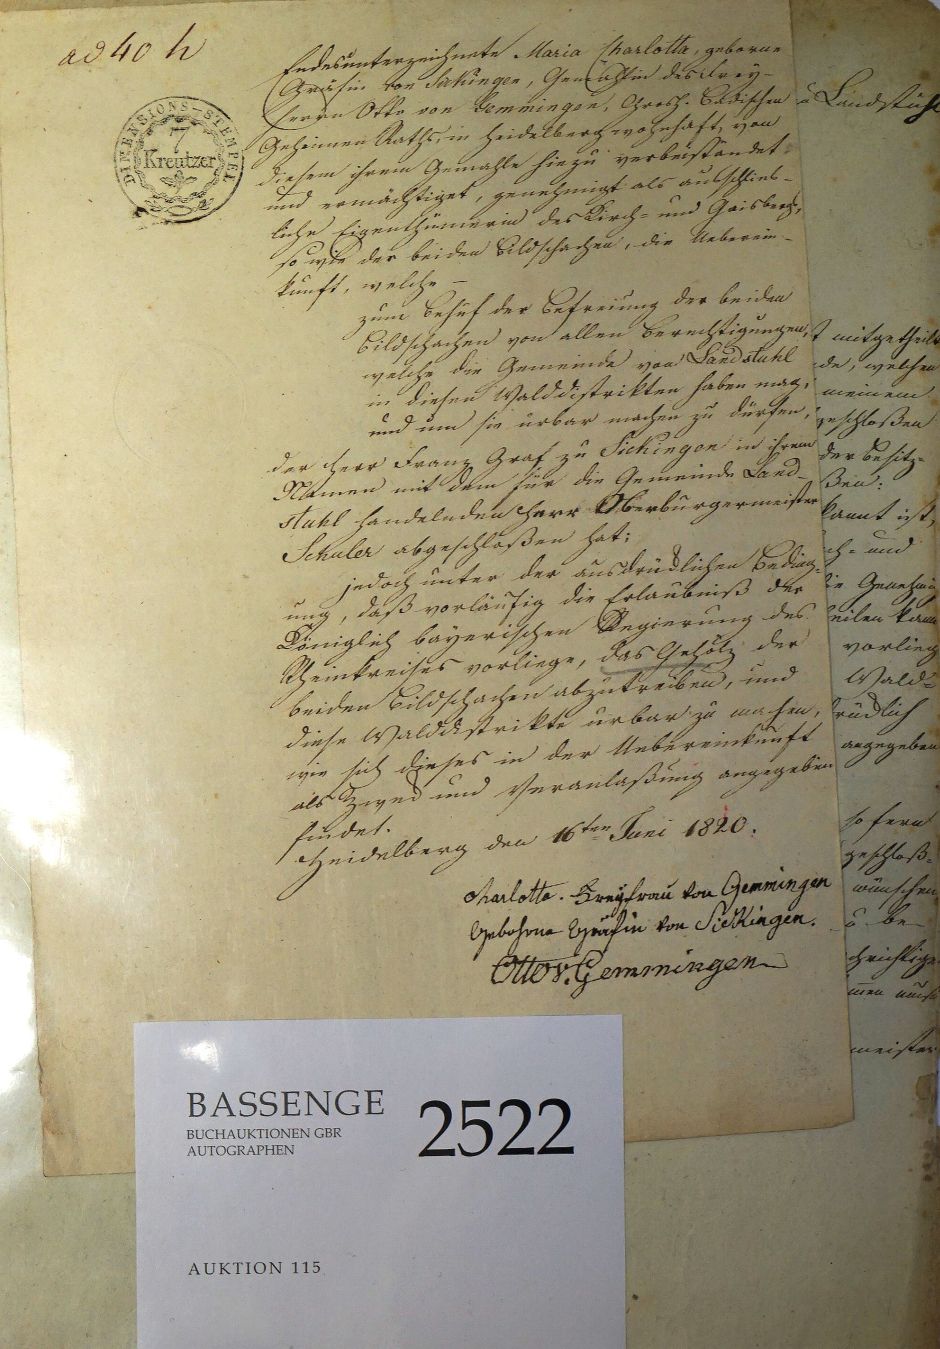 ad 40 h
DIMENSIONS-STEMPEL
7
Kreutzer
Endesunterzeichnete Maria Charlotta, geborne
Gräfin von Sickingen, Gemahlin des Frey-
herrn Otto von Gemmingen, Grosh. Badischen
Geheimen Raths, in Heidelberg wohnhaft, von
diesem ihrem Gemahle hiezu verbeistandet
und ermächtiget, genehmigt als ausschlies-
liche Eigenthümerin des Kirch- und Gaisbergs,
so wie der beiden Bildschachen, die Ueberein-
kunft, welche -
zum Behuf der Befreiung der beiden
Bildschachen von allen Berechtigungen,
welche die Gemeinde von Landstuhl
in diesen Walddistrikten haben mag,
und um sie urbar machen zu dürfen,
der Herr Franz Graf zu Sickingen in ihrem
Namen mit dem für die Gemeinde Land-
stuhl handelnden Herr Oberbürgermeister
Schuler abgeschloßen hat;
jedoch unter der ausdrücklichen Beding-
ung, daß vorläufig die Erlaubniß der
Königlich bayerischen Regierung des
Rheinkreises vorliege, das Gehölz der
beiden Bildschachen abzutreiben, und
diese Walddistrikte urbar zu machen,
wie sich dieses in der Uebereinkunft
als Zweck und Veranlaßung angegeben
findet.
Heidelberg den 16ten Juni 1820.
Charlotte. Freyfrau von Gemmingen
gebohrne Gräfin von Sickingen.
Otto v. Gemmingen
Landstuhl
mitgetheilt
de, welchen
meinem
geschloßen
der Besitz-
ßen:
kannt ist,
ch- und
die Genehmi
eilen kann
vorlieg
Wald-
rücklich
angegeben
so fern
geschloß-
wünschen
u be-
chrichtige
men auch
meister
BASSENGE
BUCHAUKTIONEN GBR
AUTOGRAPHEN
2522
AUKTION 115